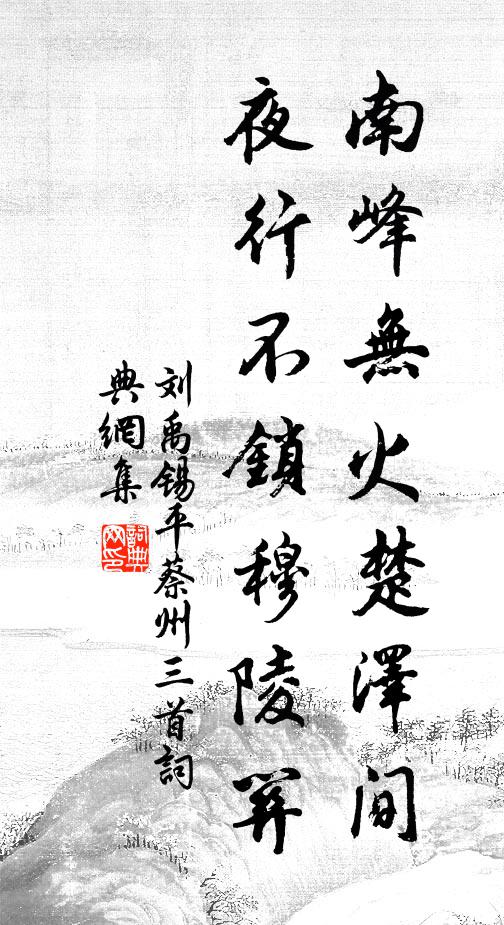 南峰無火楚澤间
夜行不鎖穆陵關
刘禹锡平蔡州三首詞
典網集
詞典
网印